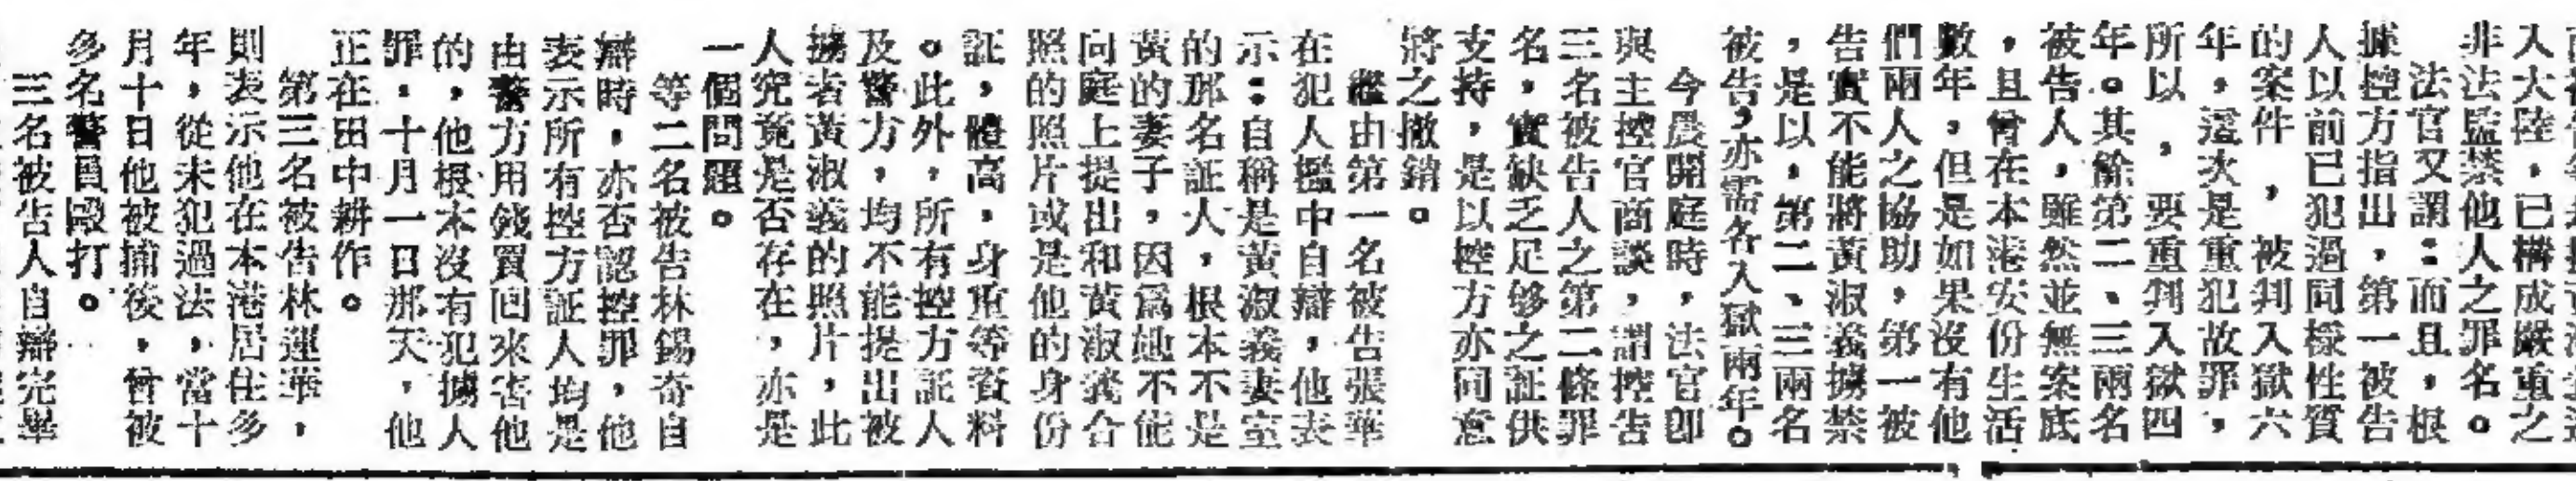 入大陸，已構成嚴重之
非法監禁他人之罪名。
法官又謂：而且，根
據控方指出，第一被告
人以前已犯過同樣性質
的案件，被判入獄六
年，這次是重犯故罪，
所以，要重判入獄四
年。其餘第二、三兩名
被告人，雖然並無案底
，且曾在本港安份生活
數年，但是如果沒有他
們兩人之協助，第一被
告實不能將黃淑義擄禁
，是以，第二、三兩名
被告，亦需各入獄兩年。
今晨開庭時，法官即
與主控官商談，謂控告
三名被告人之第二條罪
名，實缺乏足够之証供
支持，是以控方亦同意
將之撤銷。
繼由第一名被告張華
在犯人欄中自辯，他表
示：自稱是黃淑義妻室
的那名証人，根本不是
黃的妻子，因為她不能
向庭上提出和黃淑義合
照的照片或是他的身份
証，體高，身重等資料
。此外，所有控方証人
及警方，均不能提出被
擄者黃淑義的照片，此
人究竟是否存在，亦是
一個問題。
等二名被告林錫奇自
辯時，亦否認控罪，他
表示所有控方証人均是
由警方用錢買回來害他
的，他根本沒有犯擄人
罪，十月一日那天，他
正在田中耕作。
第三名被告林運華，
則表示他在本港居住多
年，從未犯過法，當十
月十日他被捕後，曾被
多名警員毆打。
三名被告人自辯完畢